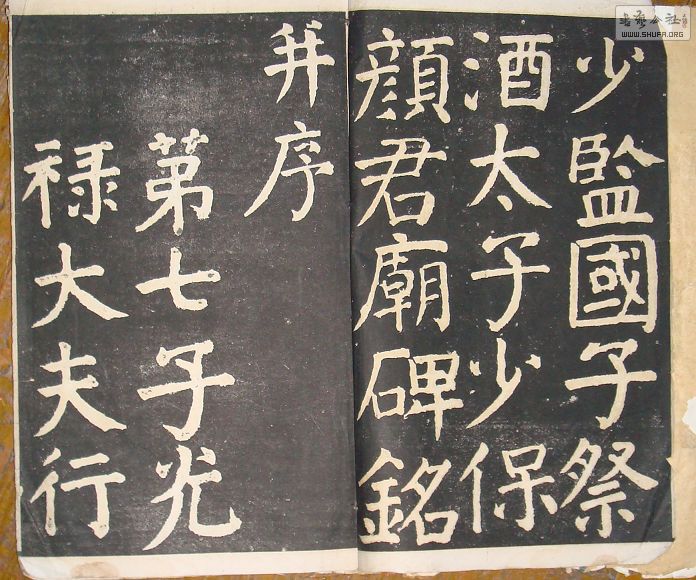 少監國子祭
酒太子少保
顔君廟碑銘
并序
第七子光
禄大夫行
WWW.SHUFA.ORG